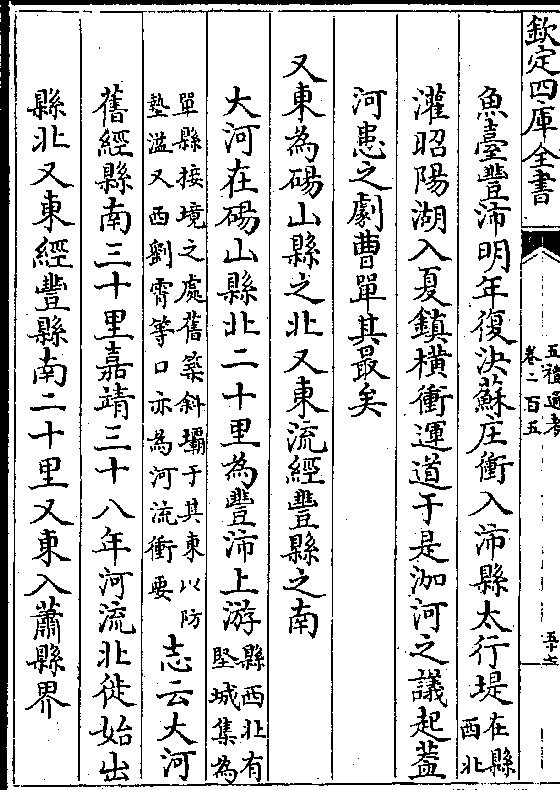 欽定四庫全書
五禮通考
卷二百五
魚臺豐沛明年復決蘇庄衝入沛縣太行堤在縣西北
灌昭陽湖入夏鎮橫衝運道于是泇河之議起蓋
河患之劇曹單其最矣
又東為碭山縣之北又東流經豐縣之南
大河在碭山縣北二十里為豐沛上游縣西北有堅城集為
單縣接境之處舊築斜壩于其東以防墊溢又西劉霄等口亦為河流衝要志云大河
舊經縣南三十里嘉靖三十八年河流北徙始出
縣北又東經豐縣南二十里又東入蕭縣界